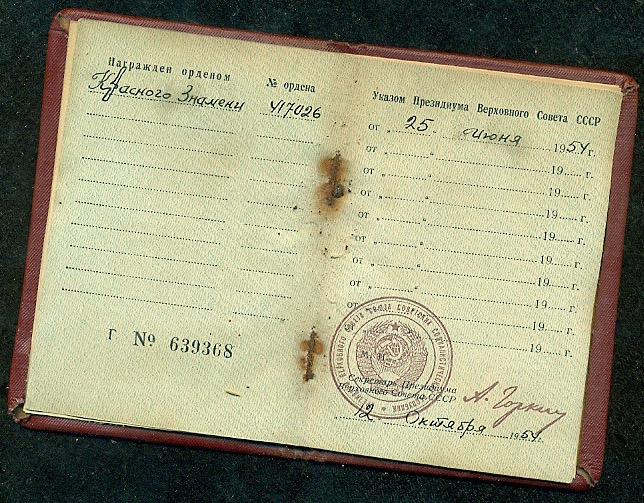 Награжден орденом
№ ордена
Красного Знамени 417026
Г № 639368
Указом Президиума Верховного Совета СССР
от „ 25 “ Июня 1954 г.
от „ “ 19 г.
от „ “ 19 г.
от „ “ 19 г.
от „ “ 19 г.
от „ “ 19 г.
от „ “ 19 г.
от „ “ 19 г.
от „ “ 19 г.
19 г.
М. П.
Секретарь Президиума
Верховного Совета СССР
А. Горкин
12 Октября 1954 г.